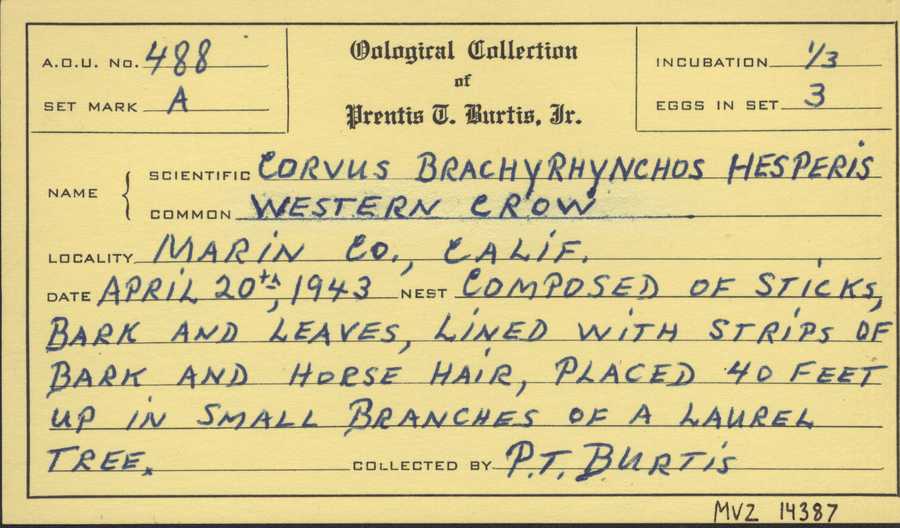 A.O.U. No. 488
SET MARK A
Oological Collection
of
Prentis T. Burtis, Jr.
INCUBATION 1/3
EGGS IN SET 3
NAME
SCIENTIFIC CORVUS BRACHYRHYNCHOS HESPERIS
COMMON WESTERN CROW
LOCALITY MARIN CO., CALIF.
DATE APRIL 20th, 1943 NEST COMPOSED OF STICKS,
BARK AND LEAVES, LINED WITH STRIPS OF
BARK AND HORSE HAIR, PLACED 40 FEET
UP IN SMALL BRANCHES OF A LAUREL
TREE. COLLECTED BY P.T. BURTIS
MVZ 14387